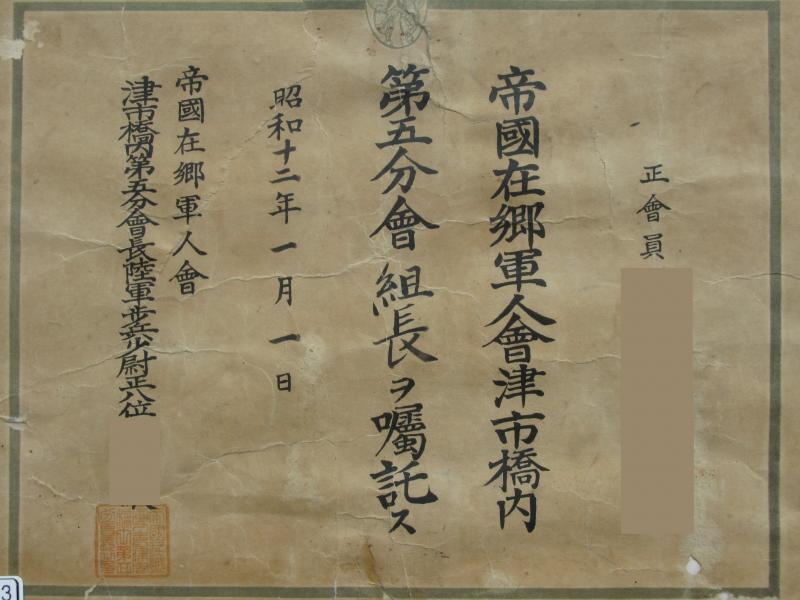 正會員
帝國在郷軍人會津市橋内
第五分會組長ヲ囑託ス
昭和十二年一月一日
帝國在郷軍人會
津市橋内第五分會長陸軍歩兵少尉正八位
3